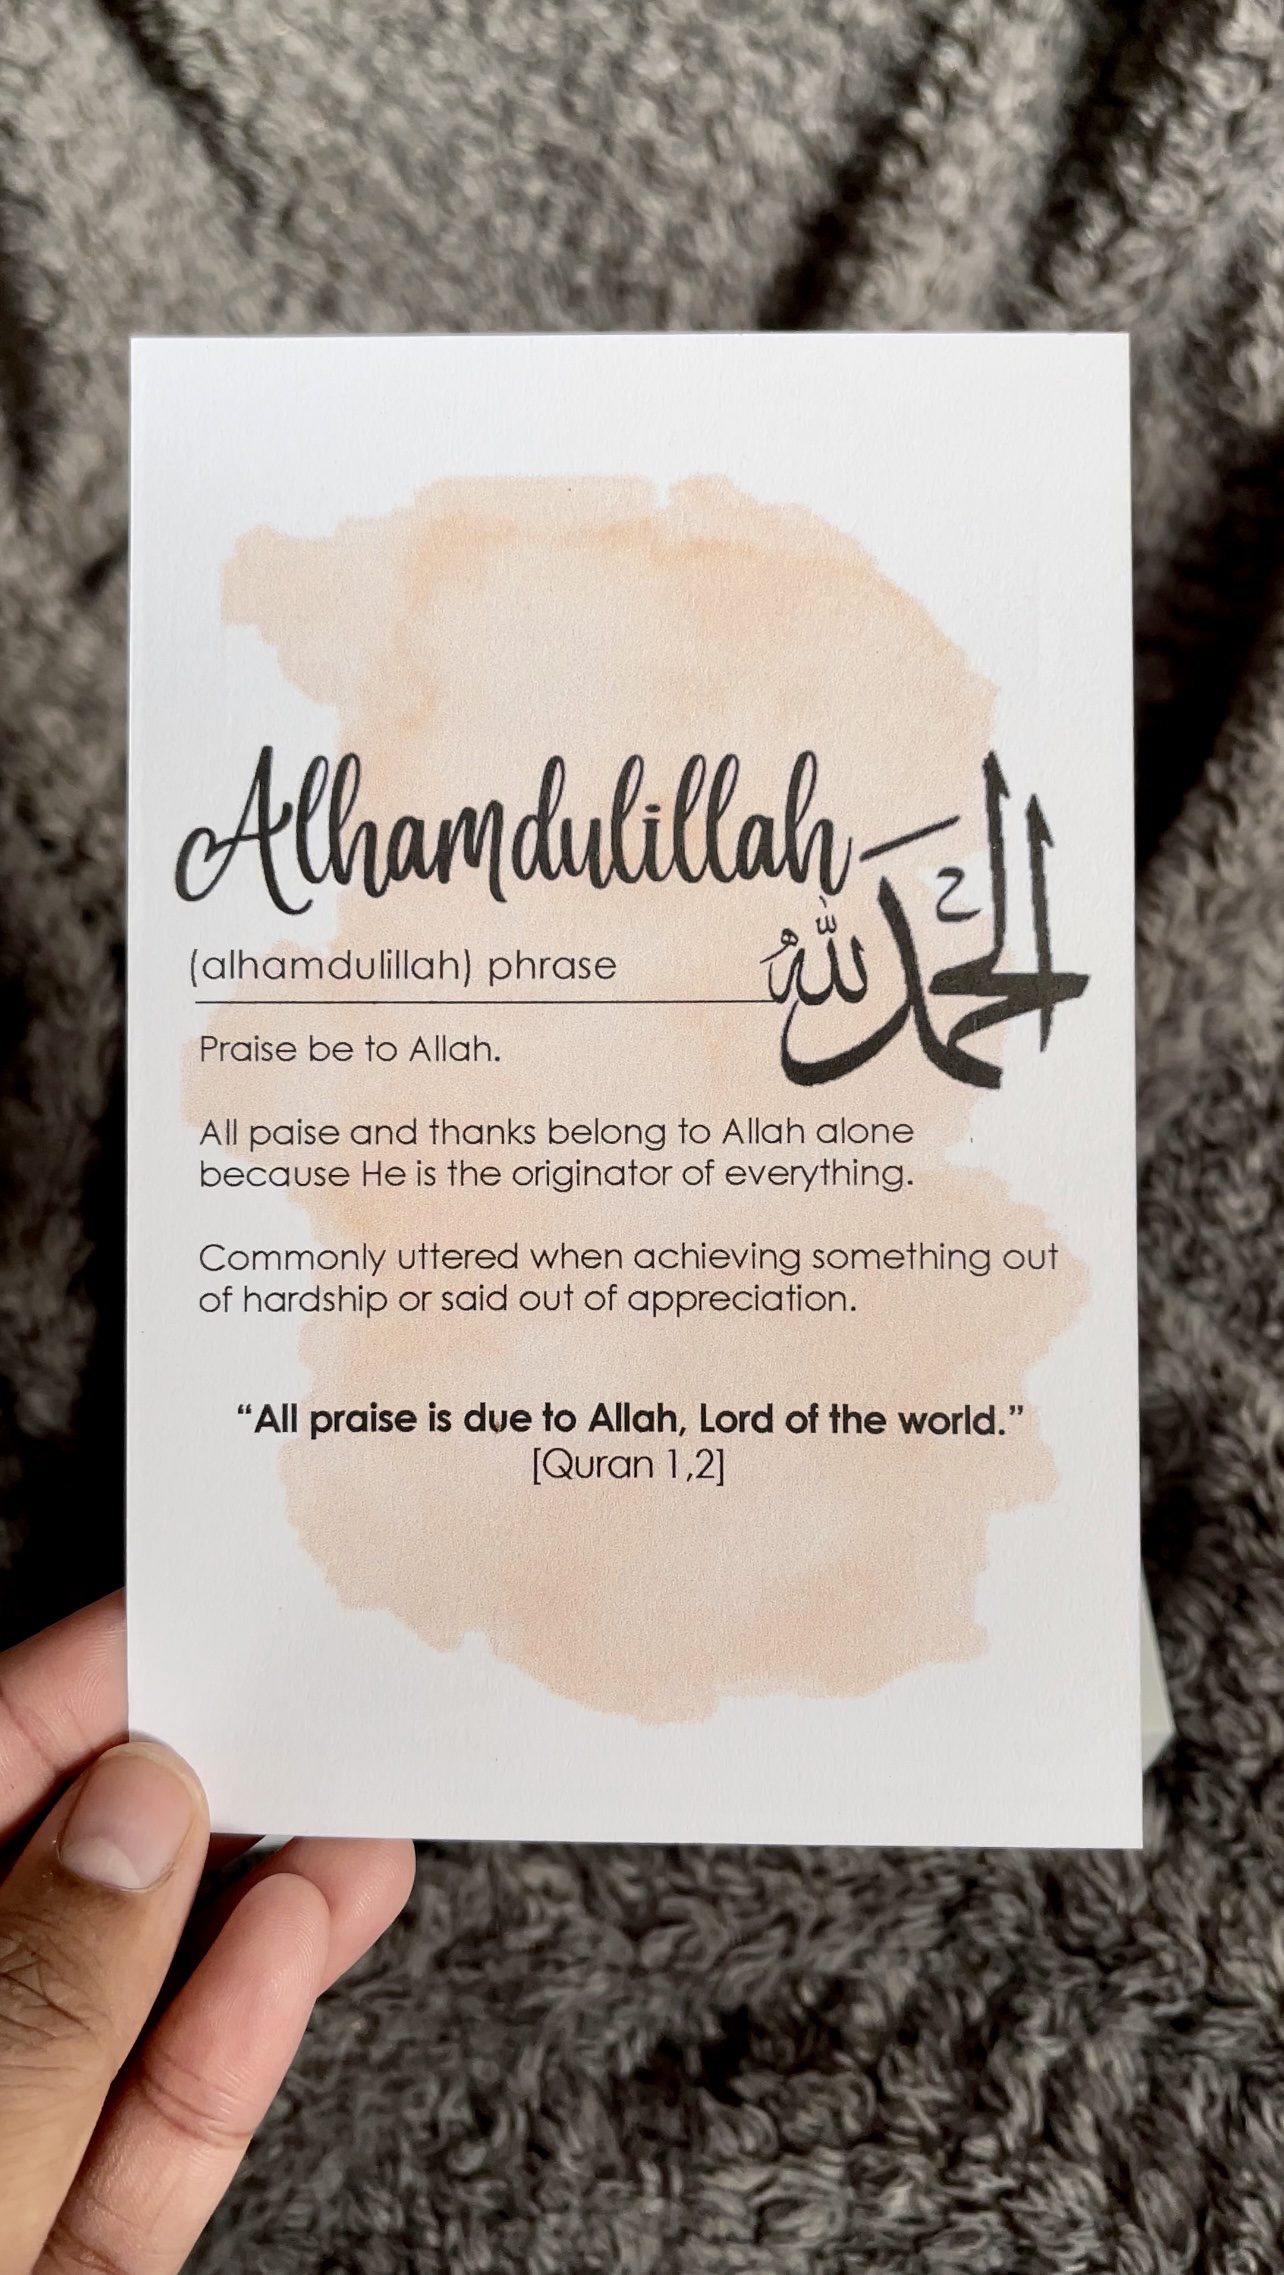 Alhamdulillah
الحمد لله
(alhamdulillah) phrase
Praise be to Allah.
All paise and thanks belong to Allah alone
because He is the originator of everything.
Commonly uttered when achieving something out
of hardship or said out of appreciation.
“All praise is due to Allah, Lord of the world.”
[Quran 1,2]